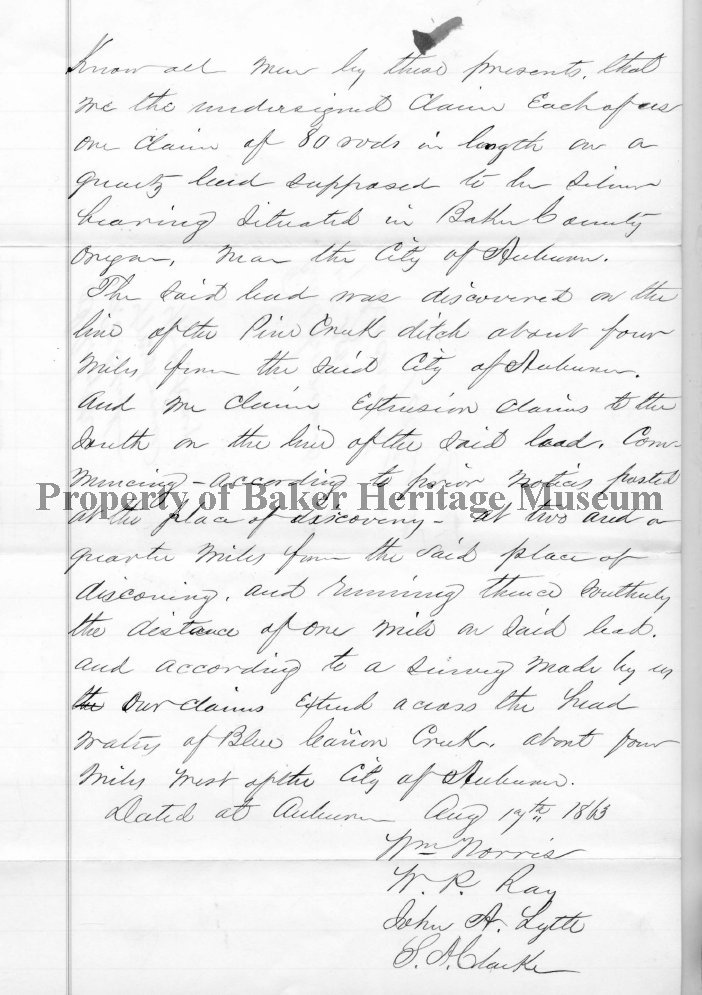 Know all men by these presents, that
we the undersigned claim Each of us
one claim of 80 rods in length on a
quartz lead supposed to be silver
bearing situated in Baker County
Oregon, near the City of Auburn.
The said lead was discovered on the
line of the Pine Creek ditch about four
miles from the said City of Auburn.
And we claim Extension claims to the
South on the line of the said lead. Com-
mencing - according to prior notices posted
Property of Baker Heritage Museum
at the place of discovery - at two and a
quarter miles from the said place of
discovering, and running thence Southerly
the distance of one mile on said lead.
and according to a survey made by us
the our claims Extend across the head
waters of Blue Cañon Creek, about four
miles west of the City of Auburn.
Dated at Auburn Aug 19th 1863
Wm Norris
W. R. Ray
John A. Lytle
S. A. Clarke